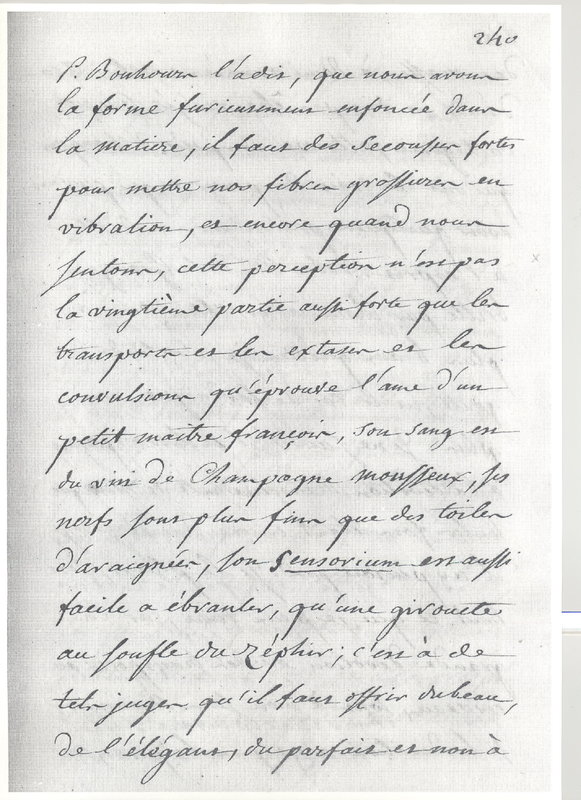 240
P. Bouhours l'a dit, que nous avons
la forme furieusement enfoncée dans
la matiere, il faut des secousses fortes
pour mettre nos fibres grossieres en
vibration, et encore quand nous
sentons, cette perception n'est pas
la vingtième partie aussi forte que les
transports et les extases et les
convulsions qu'éprouve l'ame d'un
petit maitre françois, son sang est
du vin de Champagne mousseux, ses
nerfs sont plus fins que des toiles
d'araignées, son sensorium est aussi
facile a ébranler, qu'une girouete
au soufle du zéphir; c'est à de
tels juges qu'il faut offrir du beau,
de l'élégant, du parfait et non à